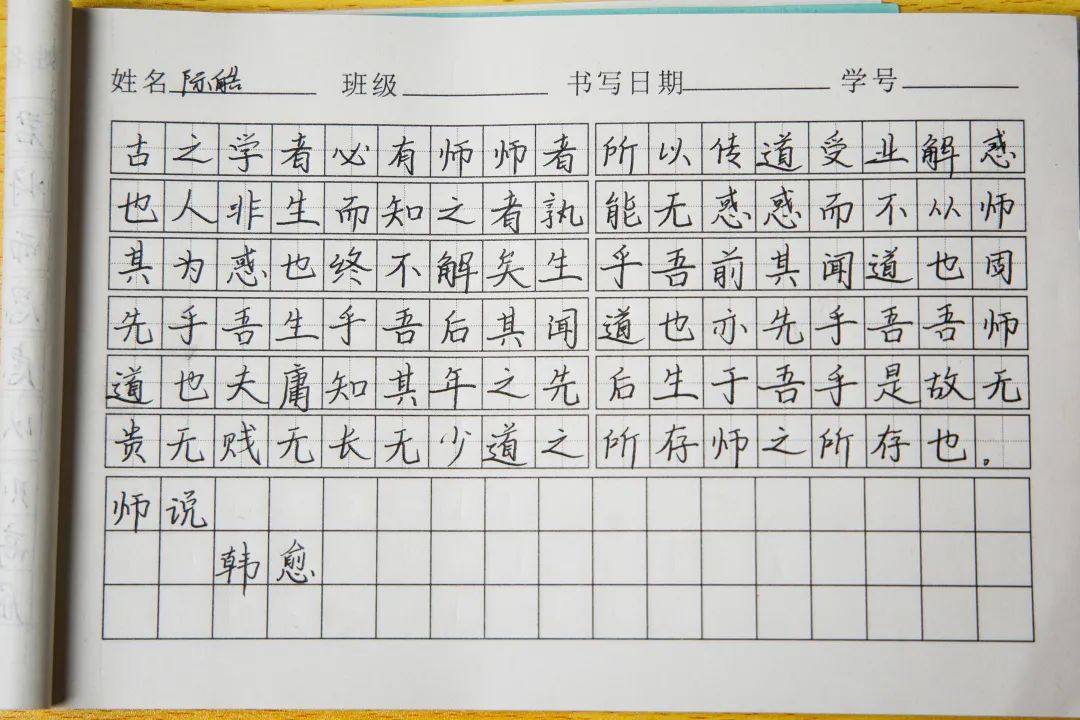 姓名 际皓 班级 书写日期 学号
古之学者必有师师者所以传道受业解惑
也人非生而知之者孰能无惑惑而不从师
其为惑也终不解矣生乎吾前其闻道也固
先乎吾生乎吾后其闻道也亦先乎吾吾师
道也夫庸知其年之先后生于吾乎是故无
贵无贱无长无少道之所存师之所存也。
师说
韩愈